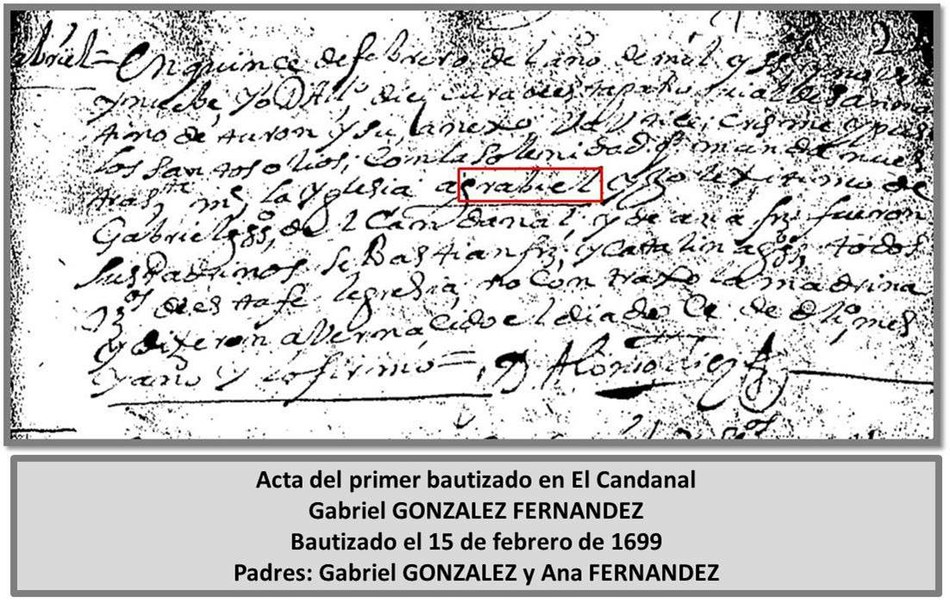 abriel= En quince de febrero de l año de mil y ss y nove
y nuebe yo D Allo diez cura de esta pa
tino de auron y su anexo crisme y puse
los santos olios, con la solenidad q manda nues
tra s ta m e la yglesia a grabiel yjo lexitimo de
Gabriel gss, de l Candanal, y de ana frz fueron
sus Padrinos seBastian frz, y Catalina gss, todos
vz os de esta felegresia, no contraxo la madrina
y dixeron aver nacido el dia doce de dho mes
y año y lo firmo= D Alonso diez
Acta del primer bautizado en El Candanal
Gabriel GONZALEZ FERNANDEZ
Bautizado el 15 de febrero de 1699
Padres: Gabriel GONZALEZ y Ana FERNANDEZ